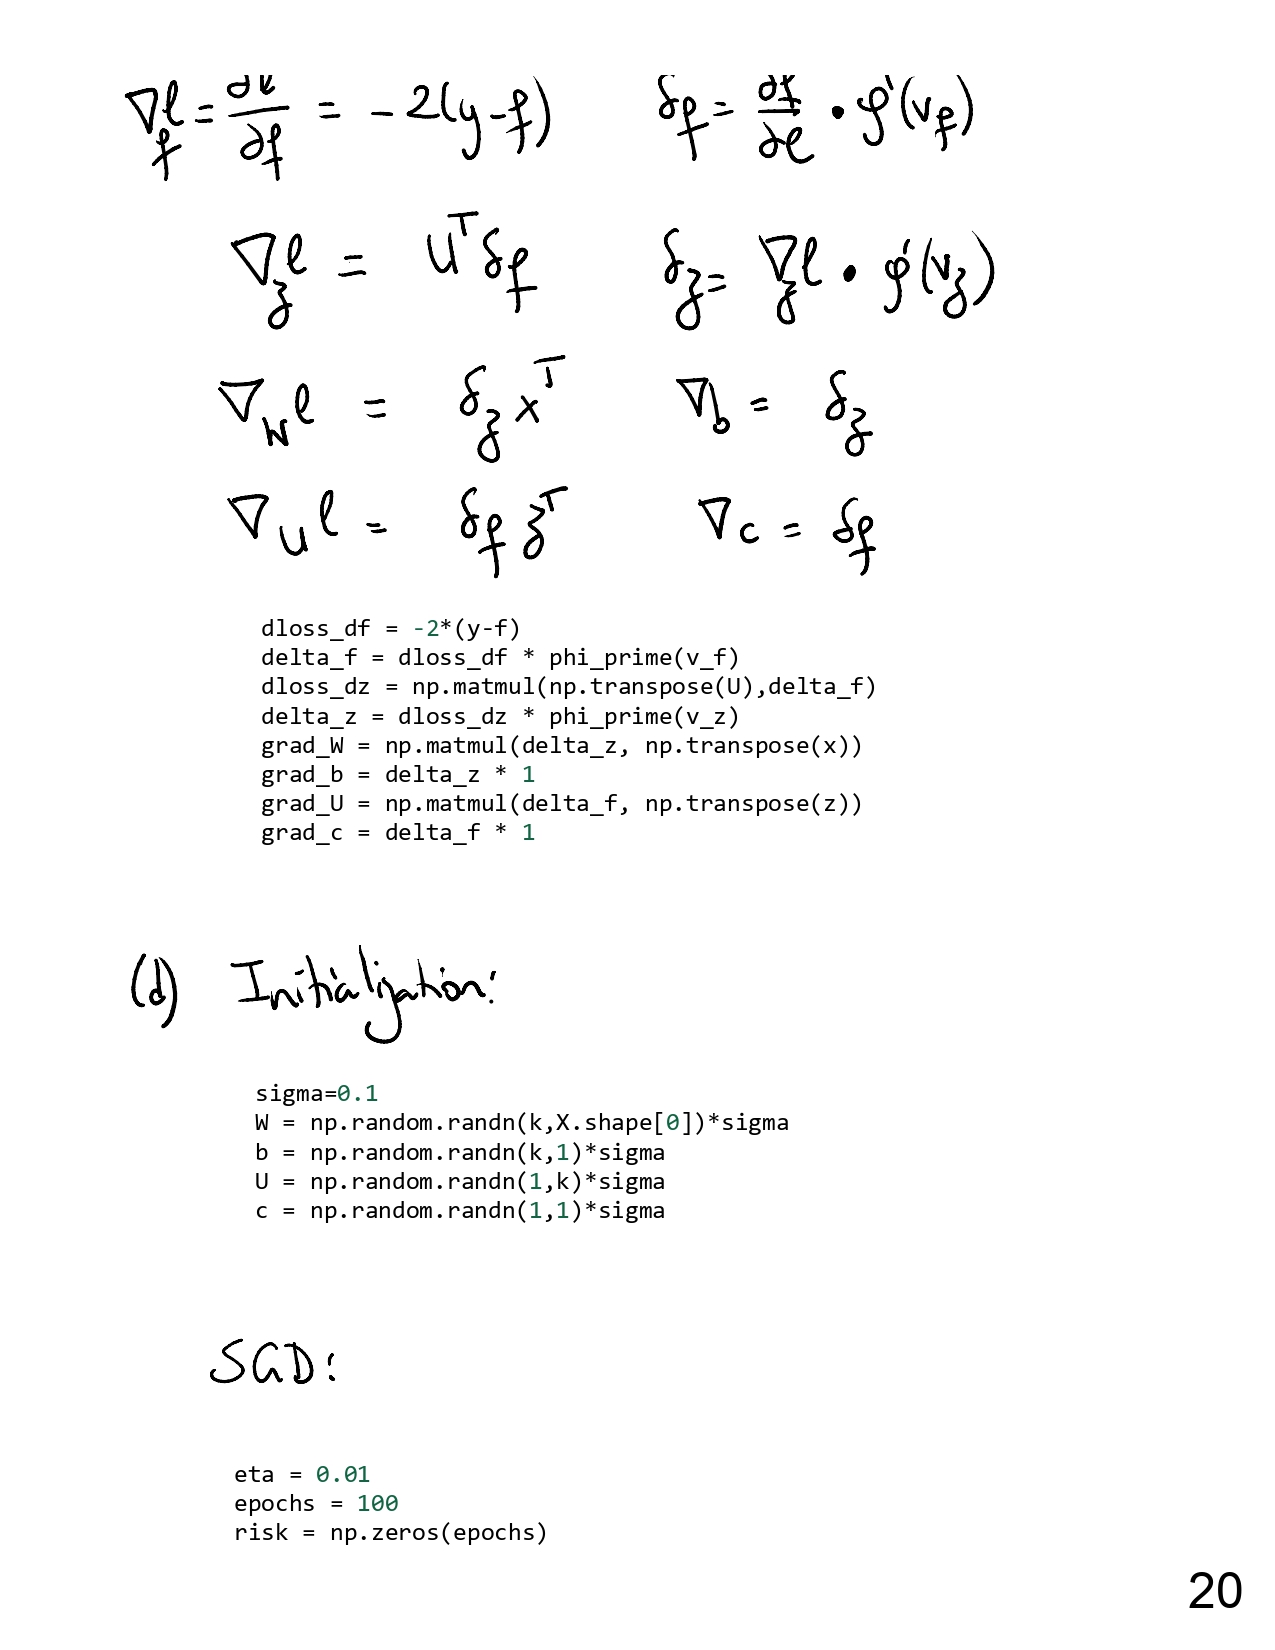 ∇_f ℓ = ∂ℓ/∂f = -2(y-f)    δ_f = ∂f/∂ℓ • φ'(v_f)
∇_z ℓ = U^T δ_f    δ_z = ∇_z ℓ • φ'(v_z)
∇_W ℓ = δ_z x^T    ∇_b = δ_z
∇_U ℓ = δ_f z^T    ∇_c = δ_f
dloss_df = -2*(y-f)
delta_f = dloss_df * phi_prime(v_f)
dloss_dz = np.matmul(np.transpose(U),delta_f)
delta_z = dloss_dz * phi_prime(v_z)
grad_W = np.matmul(delta_z, np.transpose(x))
grad_b = delta_z * 1
grad_U = np.matmul(delta_f, np.transpose(z))
grad_c = delta_f * 1
(d) Initialization:
sigma=0.1
W = np.random.randn(k,X.shape[0])*sigma
b = np.random.randn(k,1)*sigma
U = np.random.randn(1,k)*sigma
c = np.random.randn(1,1)*sigma
SGD:
eta = 0.01
epochs = 100
risk = np.zeros(epochs)
20